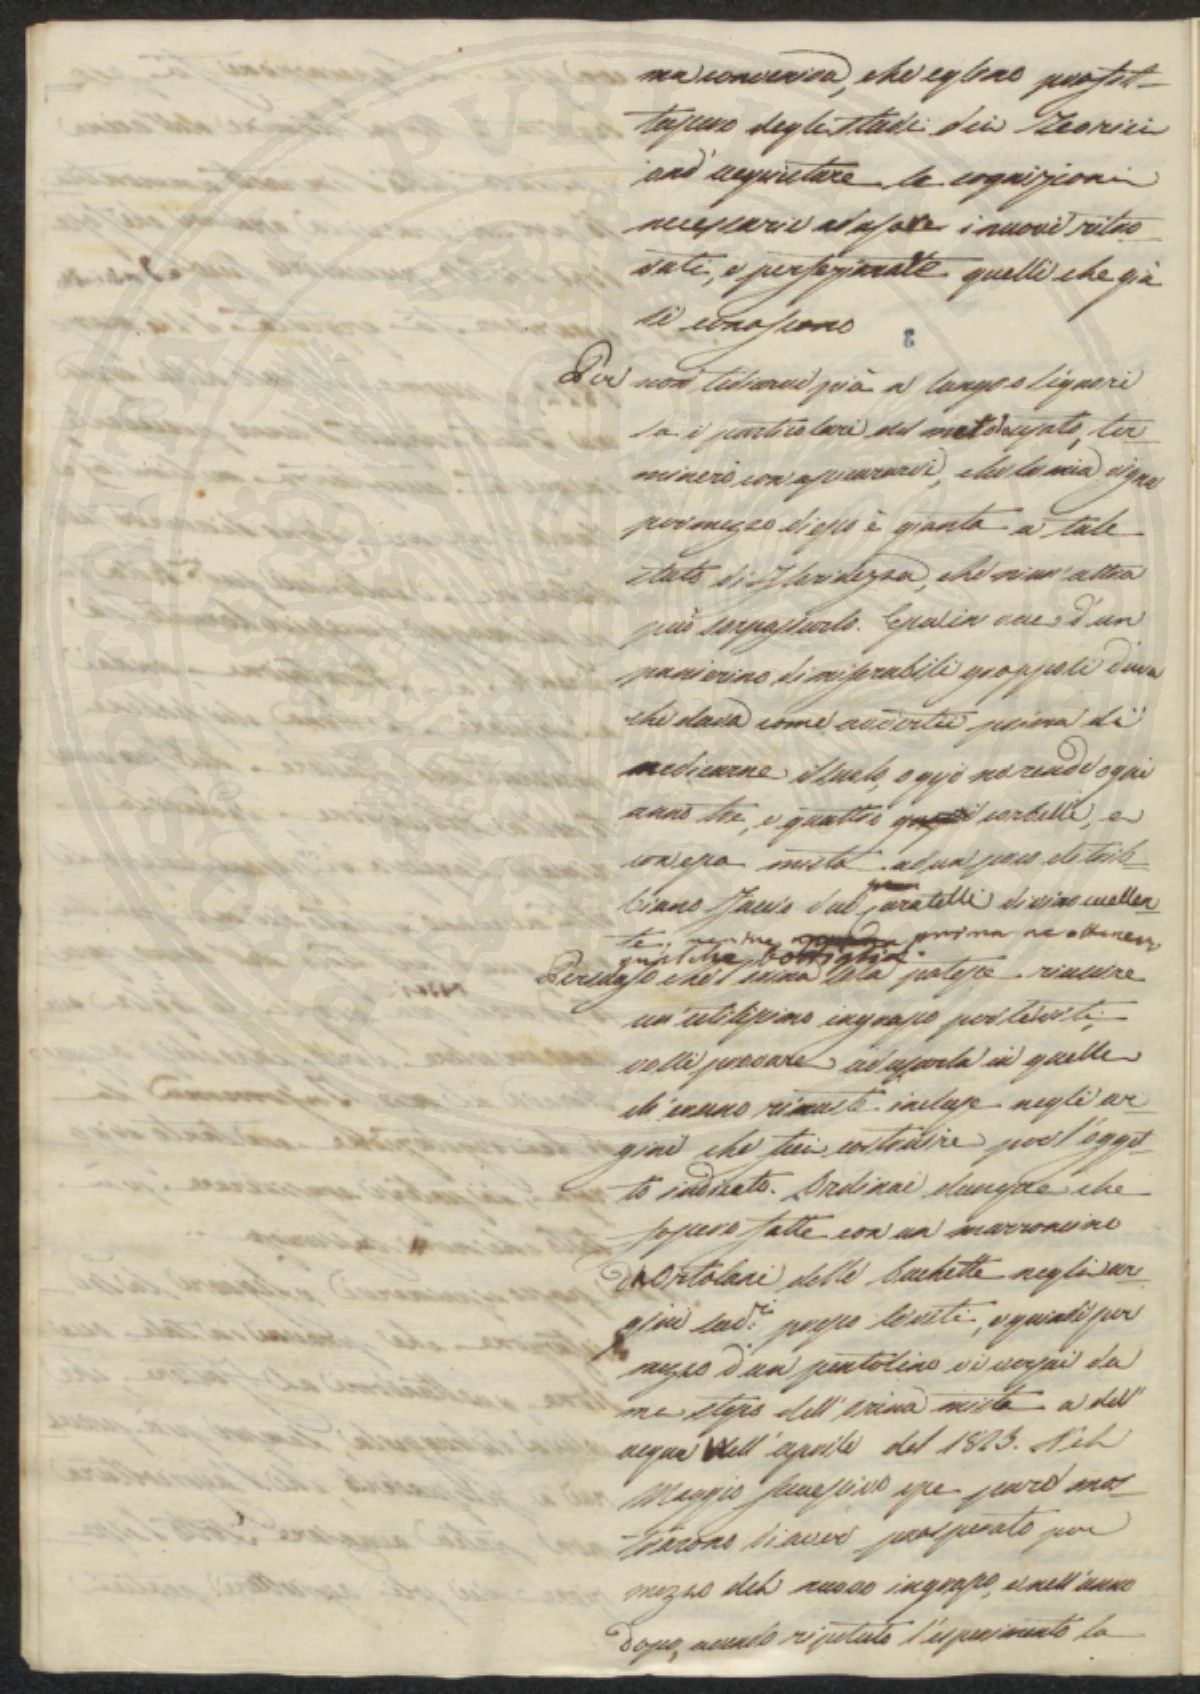 ma conversa, che eglino profit-
tassero degli studi dei Teorici
ond'acquistare le cognizioni
necessarie ad usare i nuovi ritro
vati, e perfezionare quelli che già
si conoscono
Per non tediarvi più a lungo o Signori
su i particolari del metodo usato, ter
minerò con assicurarvi, che la mia vigna
per mezzo di esso è giunta a tale
stato di floridezza, che niun'altra
può sorpassarlo. Essa in vece d'un
panierino di miserabili grappoli d'uva
che dava come avvertii prima di
medicarne il suolo, oggi ne rende ogni
anno tre, e quattro corbelli, e
con essa mista ad un poco di treb-
biano faccio due caratelli di vino eccellen
te, mentre prima ne ottenevo
qualche bottiglia.
Persuaso che l'orina sola potesse riuscire
un utilissimo ingrasso per le viti,
volli provare ad usarla in quelle
ch'erano rimaste incluse negli ar
gini che feci costruire per l'ogget-
to indicato. Ordinai dunque che
fossero fatte con un marroncino
da Ortolani delle buchette negli ar
gini sud.i presso le viti, e quindi per
mezzo d'un pentolino vi versai da
me stesso dell'orina mista a dell'
acqua nell'aprile del 1823. Nel
Maggio successivo esse pure mos
trarono di aver prosperato per
mezzo del nuovo ingrasso, e nell'anno
dopo, avendo ripetuto l'esperimento la